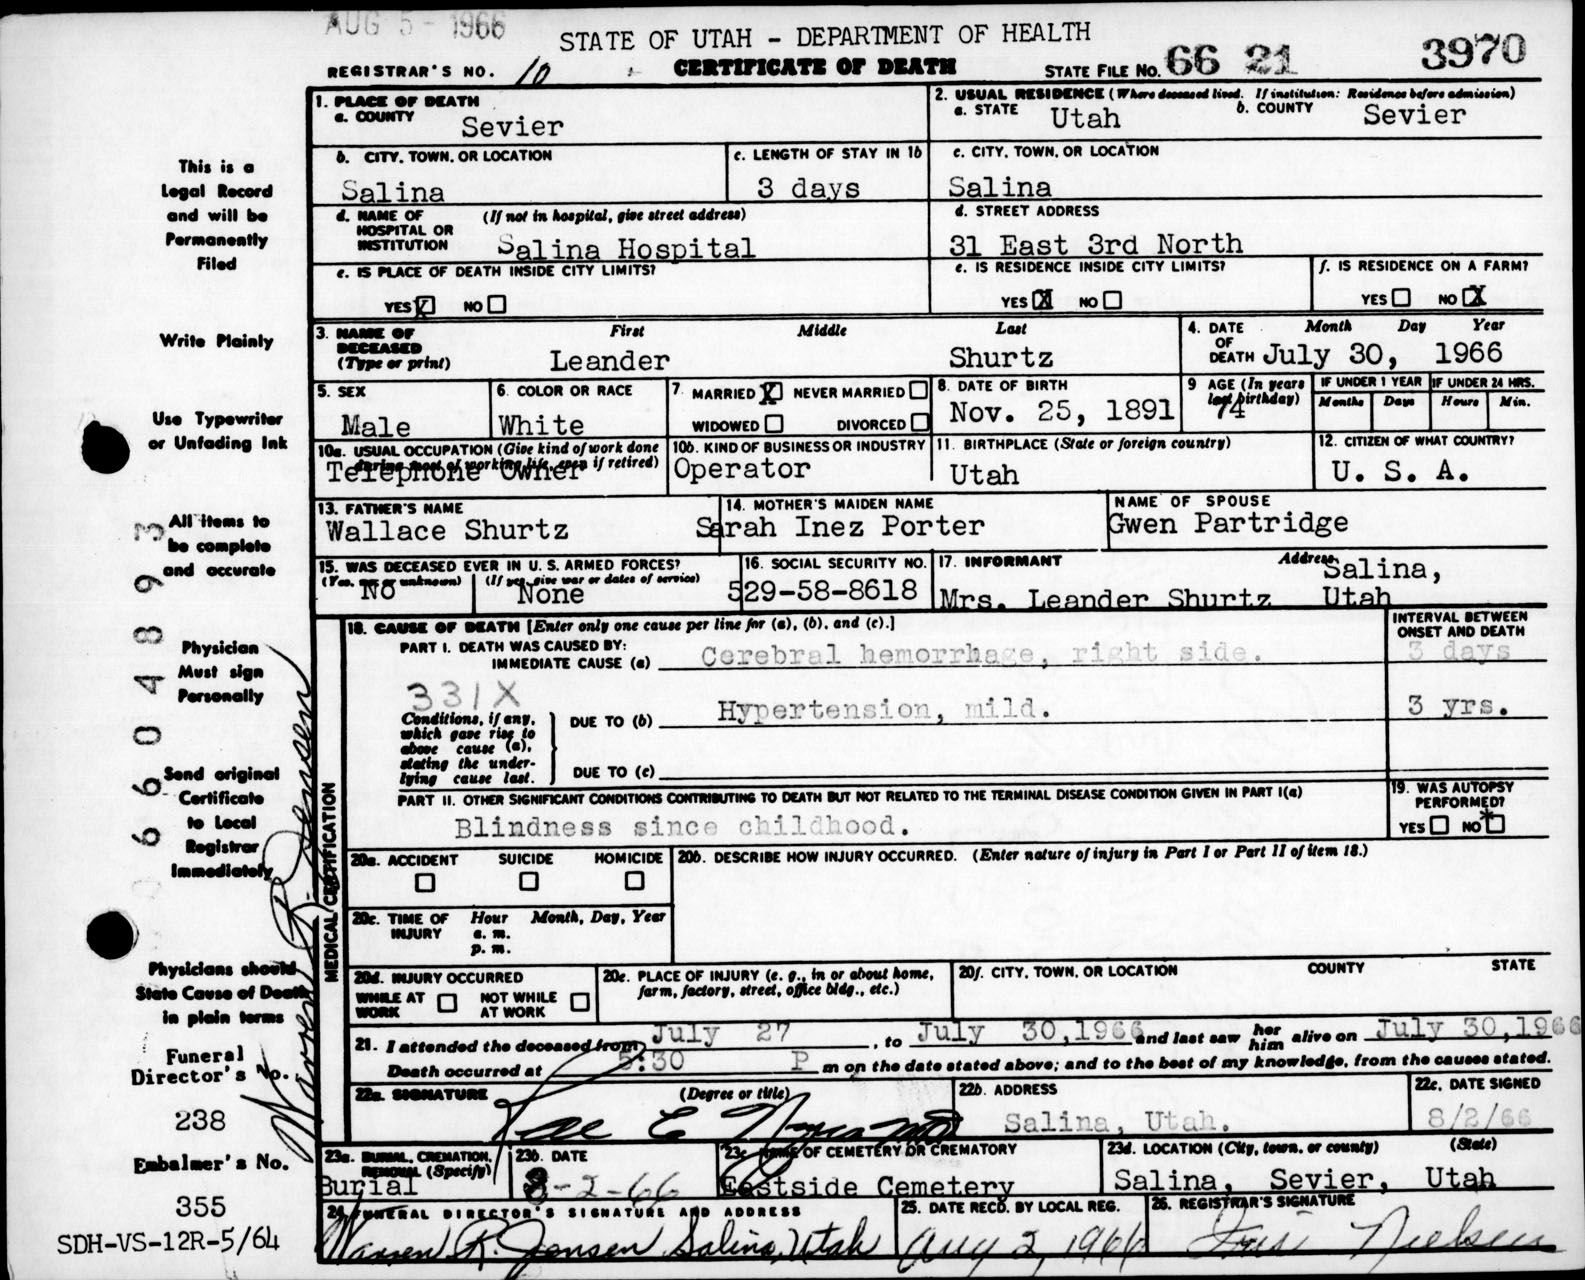 AUG 5 - 1966
STATE OF UTAH - DEPARTMENT OF HEALTH
REGISTRAR'S NO. 10 CERTIFICATE OF DEATH STATE FILE NO. 66 21 3970
1. PLACE OF DEATH
a. COUNTY Sevier
2. USUAL RESIDENCE (Where deceased lived. If institution: Residence before admission)
a. STATE Utah b. COUNTY Sevier
b. CITY, TOWN, OR LOCATION Salina
c. LENGTH OF STAY IN 1b 3 days
c. CITY, TOWN, OR LOCATION Salina
d. NAME OF HOSPITAL OR INSTITUTION (If not in hospital, give street address) Salina Hospital
d. STREET ADDRESS 31 East 3rd North
e. IS PLACE OF DEATH INSIDE CITY LIMITS? YES X NO
e. IS RESIDENCE INSIDE CITY LIMITS? YES X NO
f. IS RESIDENCE ON A FARM? YES NO X
3. NAME OF DECEASED (Type or print) First Middle Last
Leander Shurtz
4. DATE OF DEATH Month Day Year
July 30, 1966
5. SEX Male
6. COLOR OR RACE White
7. MARRIED X NEVER MARRIED
WIDOWED DIVORCED
8. DATE OF BIRTH Nov. 25, 1891
9 AGE (In years last birthday) 74
IF UNDER 1 YEAR Months Days
IF UNDER 24 HRS. Hours Min.
10a. USUAL OCCUPATION (Give kind of work done during most of working life, even if retired) Telephone Owner
10b. KIND OF BUSINESS OR INDUSTRY Operator
11. BIRTHPLACE (State or foreign country) Utah
12. CITIZEN OF WHAT COUNTRY? U. S. A.
13. FATHER'S NAME Wallace Shurtz
14. MOTHER'S MAIDEN NAME Sarah Inez Porter
NAME OF SPOUSE Gwen Partridge
15. WAS DECEASED EVER IN U. S. ARMED FORCES?
(Yes, no, or unknown) No (If yes, give war or dates of service) None
16. SOCIAL SECURITY NO. 529-58-8618
17. INFORMANT Address
Mrs. Leander Shurtz Salina, Utah
18. CAUSE OF DEATH [Enter only one cause per line for (a), (b), and (c).]
INTERVAL BETWEEN ONSET AND DEATH
PART I. DEATH WAS CAUSED BY:
IMMEDIATE CAUSE (a) Cerebral hemorrhage, right side. 3 days
331X
Conditions, if any, which gave rise to above cause (a), stating the underlying cause last.
DUE TO (b) Hypertension, mild. 3 yrs.
DUE TO (c)
PART II. OTHER SIGNIFICANT CONDITIONS CONTRIBUTING TO DEATH BUT NOT RELATED TO THE TERMINAL DISEASE CONDITION GIVEN IN PART I(a)
Blindness since childhood.
19. WAS AUTOPSY PERFORMED? YES NO *
20a. ACCIDENT SUICIDE HOMICIDE
20b. DESCRIBE HOW INJURY OCCURRED. (Enter nature of injury in Part I or Part II of item 18.)
20c. TIME OF INJURY Hour Month, Day, Year
a. m.
p. m.
20d. INJURY OCCURRED
WHILE AT WORK NOT WHILE AT WORK
20e. PLACE OF INJURY (e. g., in or about home, farm, factory, street, office bldg., etc.)
20f. CITY, TOWN, OR LOCATION COUNTY STATE
21. I attended the deceased from July 27, to July 30, 1966 and last saw her him alive on July 30, 1966
Death occurred at 5:30 P m on the date stated above; and to the best of my knowledge, from the causes stated.
22a. SIGNATURE (Degree or title)
22b. ADDRESS Salina, Utah.
22c. DATE SIGNED 8/2/66
23a. BURIAL, CREMATION, REMOVAL (Specify) Burial
23b. DATE 8-2-66
23c NAME OF CEMETERY OR CREMATORY Eastside Cemetery
23d. LOCATION (City, town, or county) (State)
Salina, Sevier, Utah
24. FUNERAL DIRECTOR'S SIGNATURE AND ADDRESS
Warren R. Jensen Salina, Utah
25. DATE RECD. BY LOCAL REG. Aug 2, 1966
26. REGISTRAR'S SIGNATURE Nielsen
MEDICAL CERTIFICATION
This is a
Legal Record
and will be
Permanently
Filed
Write Plainly
Use Typewriter
or Unfading Ink
All items to
be complete
and accurate
Physician
Must sign
Personally
Send original
Certificate
to Local
Registrar
Immediately
Physicians should
State Cause of Death
in plain terms
Funeral
Director's No.
238
Embalmer's No.
355
SDH-VS-12R-5/64
66 0 4893
Warren R. Jensen